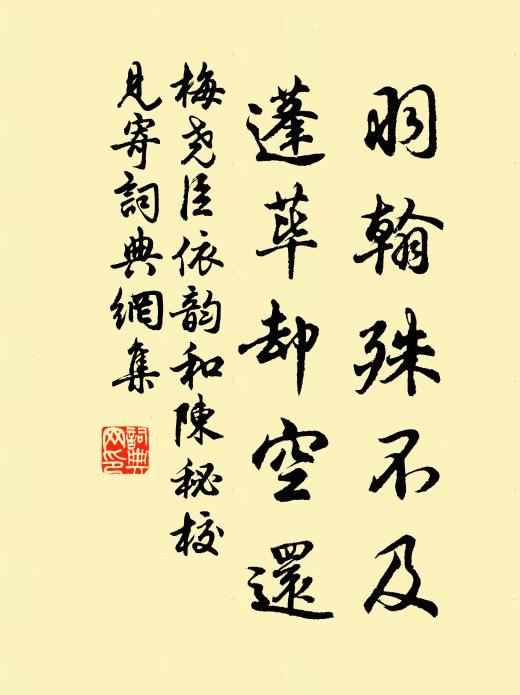 羽翰殊不及
蓬荜却空還
梅尧臣依韵和陳秘校
見寄詞典網集
詞典
网印